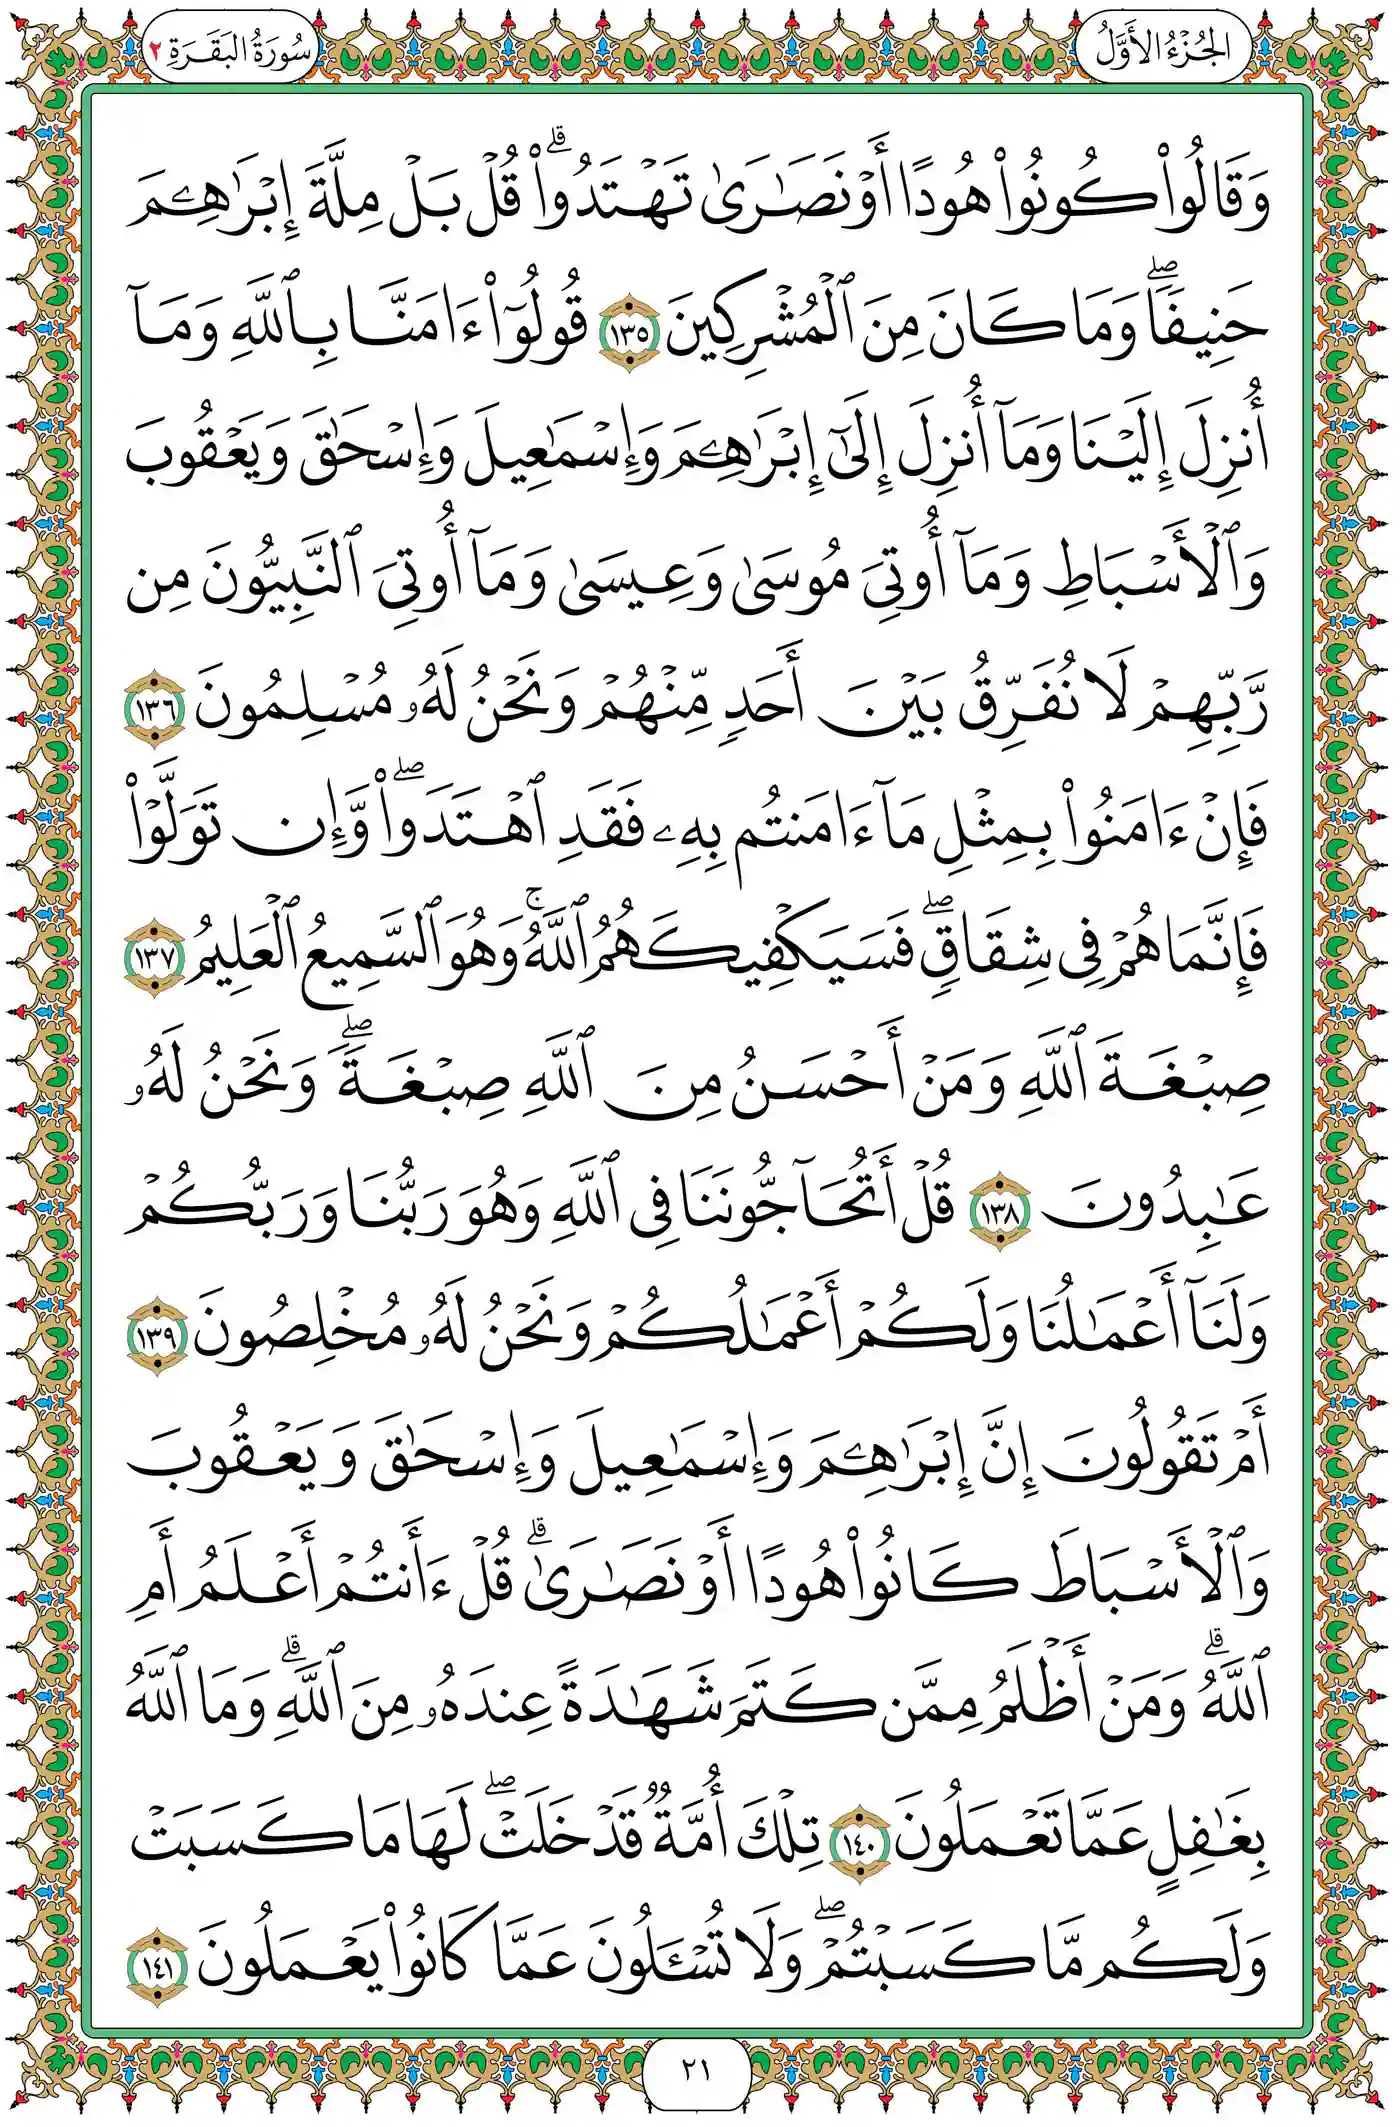 الجُزْءُ الأَوَّلُ
سُورَةُ البَقَرَةِ ٢
وَقَالُوا۟ كُونُوا۟ هُودًا أَوْ نَصَٰرَىٰ تَهْتَدُوا۟ ۗ قُلْ بَلْ مِلَّةَ إِبْرَٰهِـۧمَ
حَنِيفًا ۖ وَمَا كَانَ مِنَ ٱلْمُشْرِكِينَ ١٣٥ قُولُوٓا۟ ءَامَنَّا بِٱللَّهِ وَمَآ
أُنزِلَ إِلَيْنَا وَمَآ أُنزِلَ إِلَىٰٓ إِبْرَٰهِـۧمَ وَإِسْمَٰعِيلَ وَإِسْحَٰقَ وَيَعْقُوبَ
وَٱلْأَسْبَاطِ وَمَآ أُوتِىَ مُوسَىٰ وَعِيسَىٰ وَمَآ أُوتِىَ ٱلنَّبِيُّونَ مِن
رَّبِّهِمْ لَا نُفَرِّقُ بَيْنَ أَحَدٍ مِّنْهُمْ وَنَحْنُ لَهُۥ مُسْلِمُونَ ١٣٦
فَإِنْ ءَامَنُوا۟ بِمِثْلِ مَآ ءَامَنتُم بِهِۦ فَقَدِ ٱهْتَدَوا۟ ۖ وَّإِن تَوَلَّوْا۟
فَإِنَّمَا هُمْ فِى شِقَاقٍ ۖ فَسَيَكْفِيكَهُمُ ٱللَّهُ ۚ وَهُوَ ٱلسَّمِيعُ ٱلْعَلِيمُ ١٣٧
صِبْغَةَ ٱللَّهِ وَمَنْ أَحْسَنُ مِنَ ٱللَّهِ صِبْغَةً ۖ وَنَحْنُ لَهُۥ
عَٰبِدُونَ ١٣٨ قُلْ أَتُحَآجُّونَنَا فِى ٱللَّهِ وَهُوَ رَبُّنَا وَرَبُّكُمْ
وَلَنَآ أَعْمَٰلُنَا وَلَكُمْ أَعْمَٰلُكُمْ وَنَحْنُ لَهُۥ مُخْلِصُونَ ١٣٩
أَمْ تَقُولُونَ إِنَّ إِبْرَٰهِـۧمَ وَإِسْمَٰعِيلَ وَإِسْحَٰقَ وَيَعْقُوبَ
وَٱلْأَسْبَاطَ كَانُوا۟ هُودًا أَوْ نَصَٰرَىٰ ۗ قُلْ ءَأَنتُمْ أَعْلَمُ أَمِ
ٱللَّهُ ۗ وَمَنْ أَظْلَمُ مِمَّن كَتَمَ شَهَٰدَةً عِندَهُۥ مِنَ ٱللَّهِ ۗ وَمَا ٱللَّهُ
بِغَٰفِلٍ عَمَّا تَعْمَلُونَ ١٤٠ تِلْكَ أُمَّةٌ قَدْ خَلَتْ ۖ لَهَا مَا كَسَبَتْ
وَلَكُم مَّا كَسَبْتُمْ ۖ وَلَا تُسْـَٔلُونَ عَمَّا كَانُوا۟ يَعْمَلُونَ ١٤١
٢١